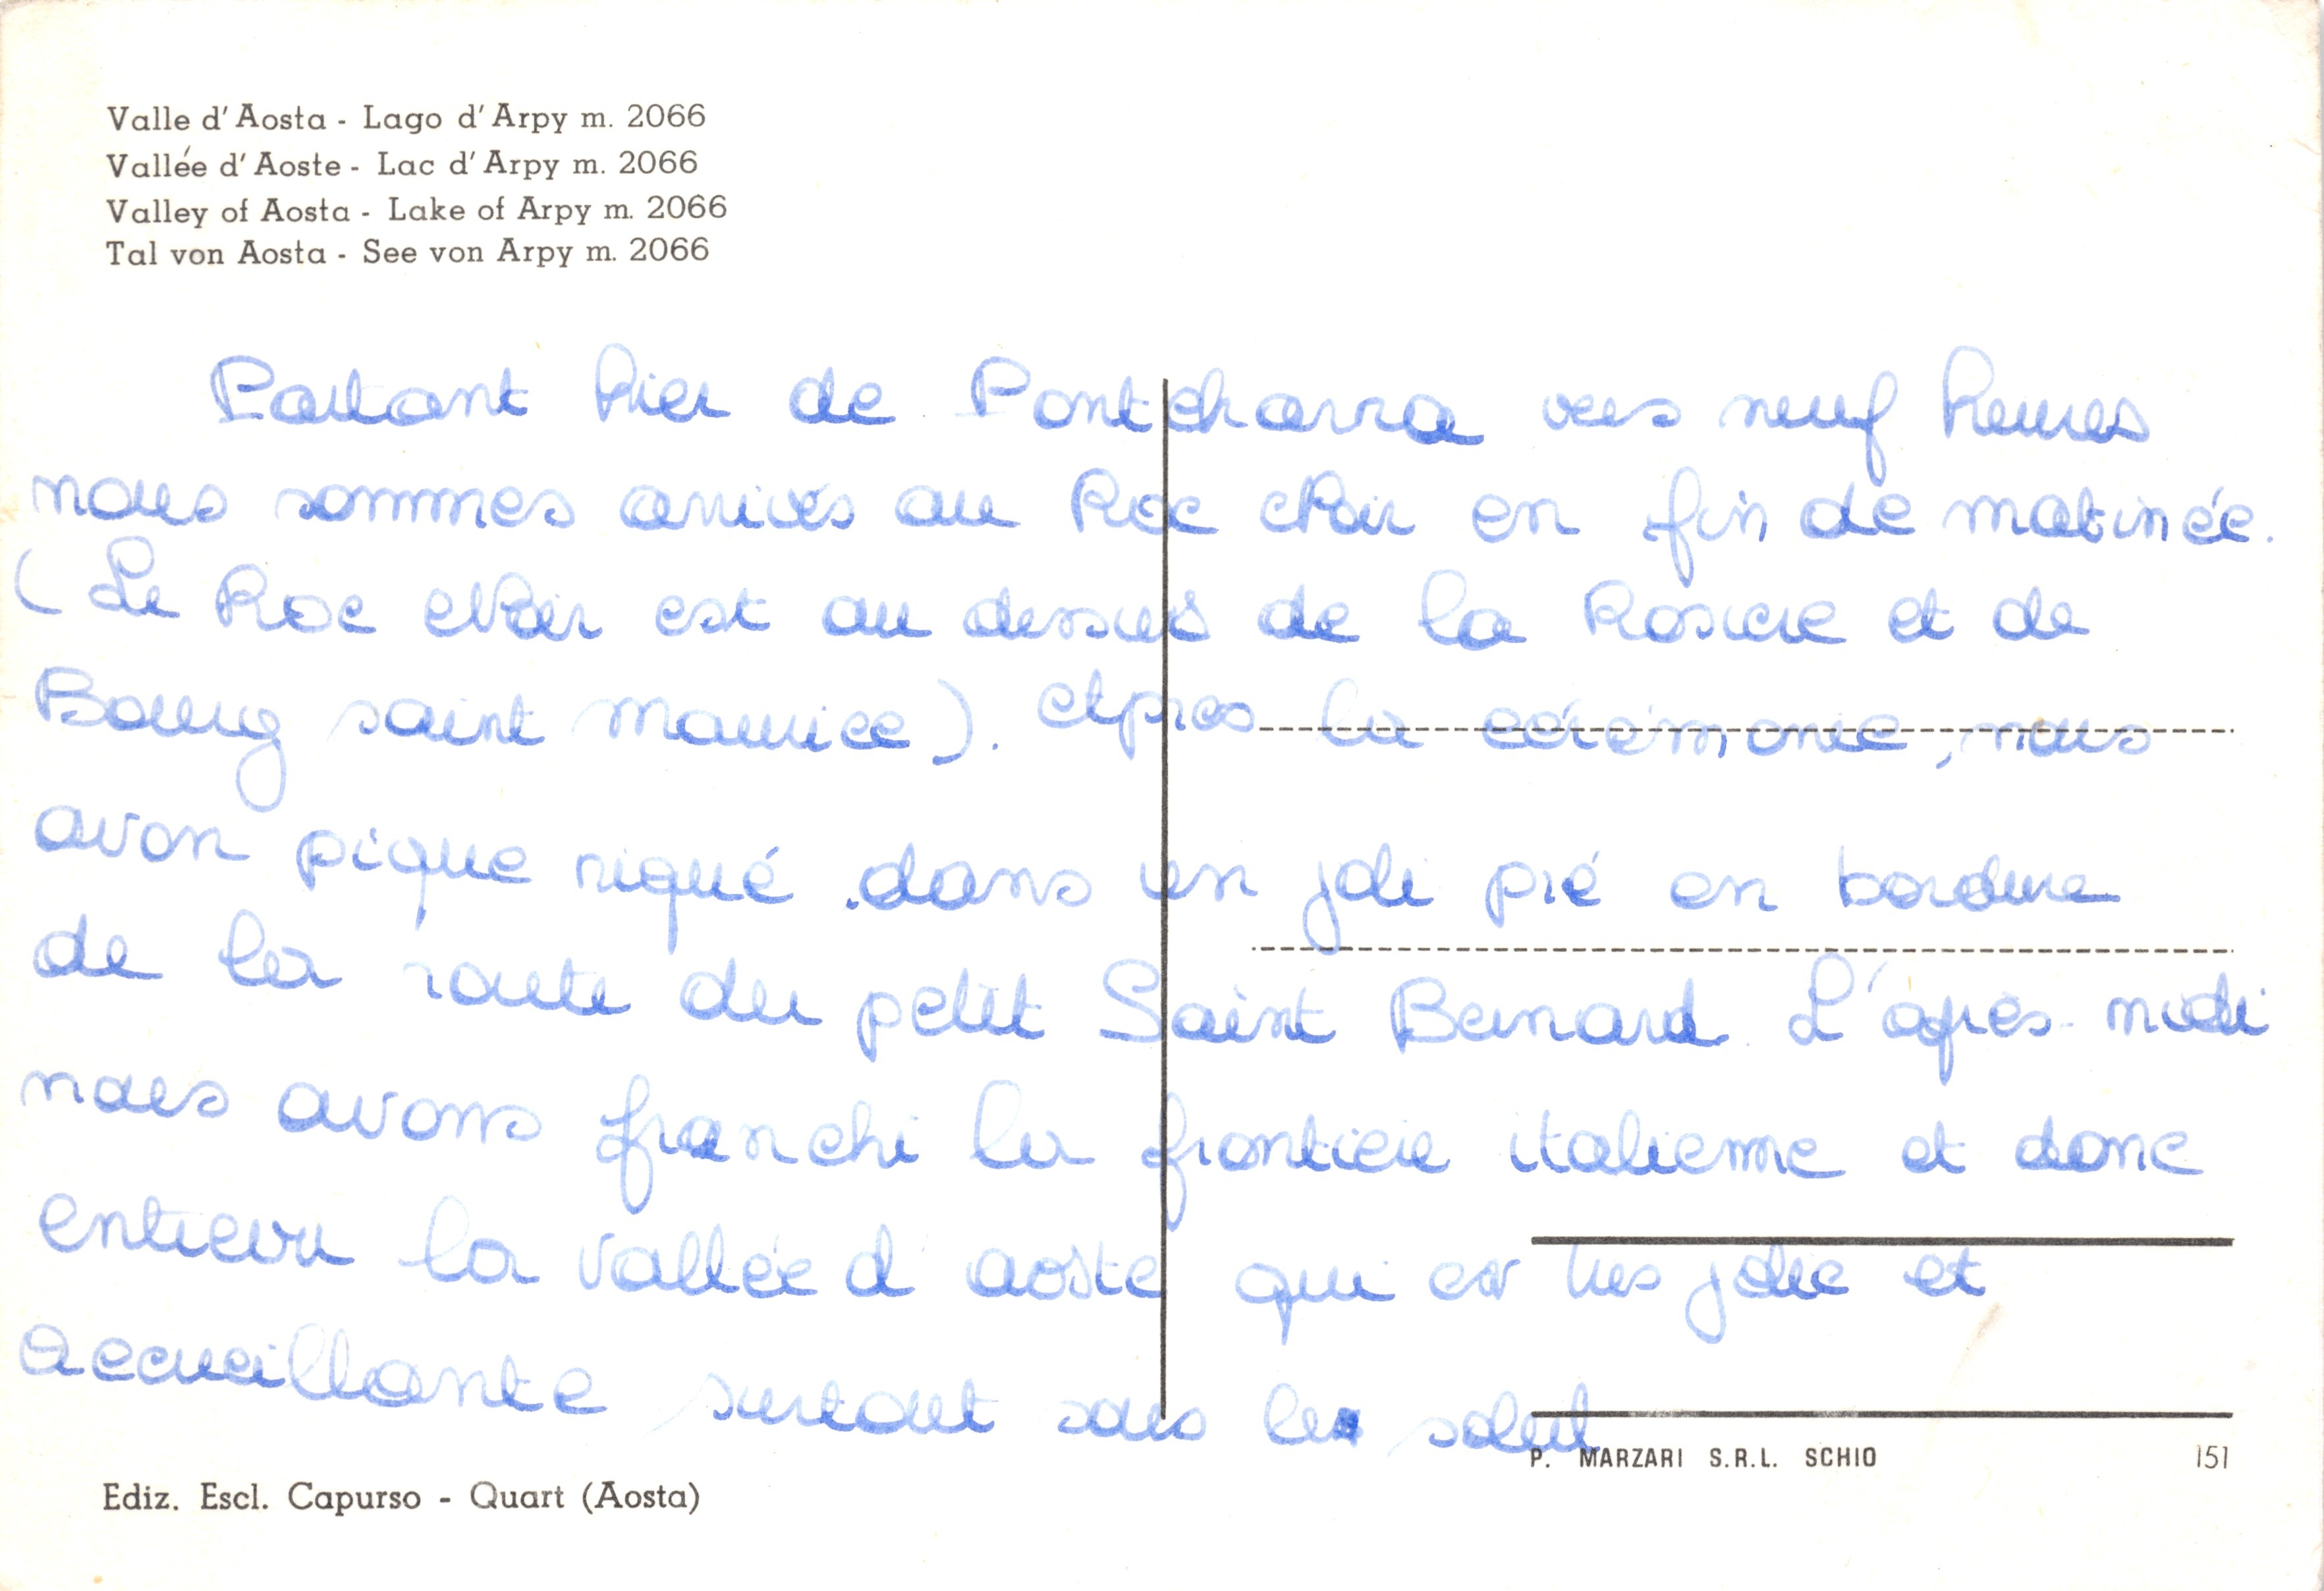 Valle d'Aosta - Lago d'Arpy m. 2066
Vallée d'Aoste - Lac d'Arpy m. 2066
Valley of Aosta - Lake of Arpy m. 2066
Tal von Aosta - See von Arpy m. 2066
Partant hier de Pontcharra vers neuf heures
nous sommes arrivés au Roc noir en fin de matinée.
(Le Roc Noir est au dessus de la Rosiere et de
Bourg saint Maurice). Après la cérémonie, nous
avon pique niqué dans un joli pré en bordure
de la route du petit Saint Bernard. L'après-midi
nous avons franchi la frontiere italienne et donc
la vallée d'aoste qui est très jolie et
accueillante surtout sous le soleil
P. MARZARI S.R.L. SCHIO 151
Ediz. Escl. Capurso - Quart (Aosta)